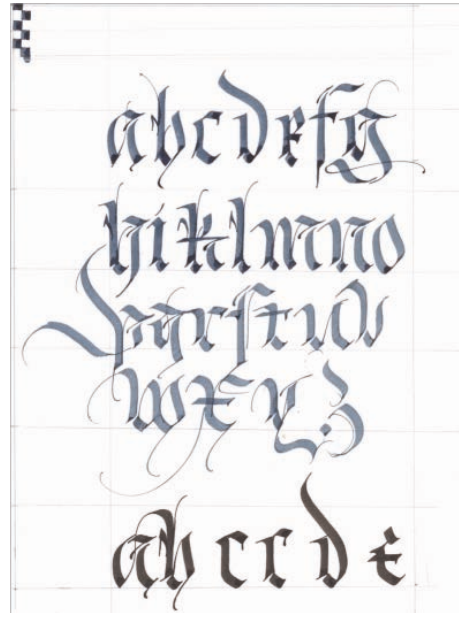 abcdefg
hiklmno
pqrstuv
wxyz
abccde